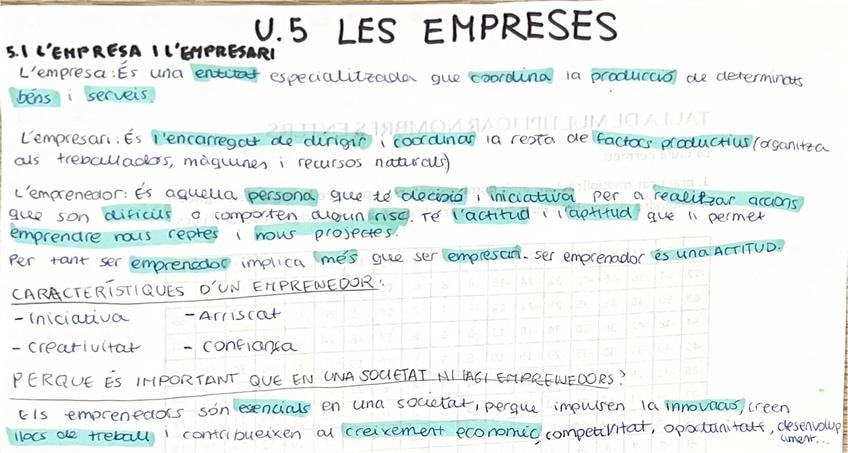 U.5 LES EMPRESES
5.1 L'EMPRESA I L'EMPRESARI
L'empresa: És una entitat especialitzada que coordina la producció de determinats
béns i serveis.
L'empresari: És l'encarregat de dirigir i coordinar la resta de factors productius (organitza
als treballadors, màquines i recursos naturals)
L'emprenedor: És aquella persona que té decisió i iniciativa per a realitzar accions
que son difícils o comporten algun risc. Té l'actitud i l'aptitud que li permet
emprendre nous reptes i nous projectes.
Per tant ser emprenedor implica més que ser empresari. ser emprenador és una ACTITUD.
CARACTERÍSTIQUES D'UN EMPRENEDOR:
- Iniciativa - Arriscat
- Creativitat - Confiança
PERQUE ÉS IMPORTANT QUE EN UNA SOCIETAT HI HAGI EMPRENEDORS?
Els emprenedors són esencials en una societat, perque impulsen la innovació, creen
llocs de treball i contribueixen al creixement econòmic, competivitat, oportunitats, desenvolup
ament...